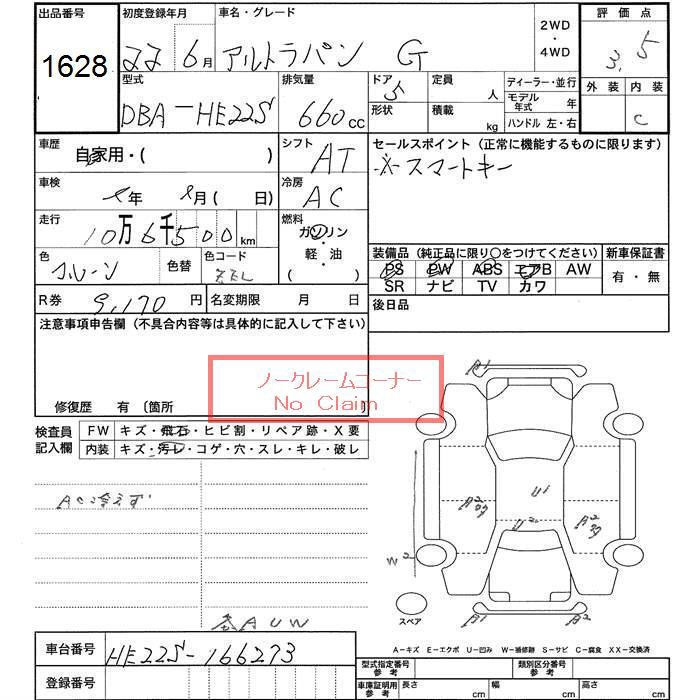 出品番号 初度登録年月 車名・グレード 2WD・4WD 評価点
1628 22 6月 アルトラパン G 3.5
型式 排気量 ドア 5 定員 人 ディーラー・並行 外装 内装
DBA-HE22S 660cc 形状 積載 kg モデル年式 年 C
ハンドル 左・右
車歴 自家用・( ) シフト AT セールスポイント (正常に機能するものに限ります)
スマートキー
車検 年 月( 日) 冷房 AC
走行 10万6千500km 燃料 ガソリン・軽・油 ( )
装備品 (純正品に限り○をつけてください) 新車保証書
色 色替 色コード PS PW ABS エアB AW 有・無
SR ナビ TV カワ
R券 9,170円 名変期限 月 日 後日品
注意事項申告欄 (不具合内容等は具体的に記入して下さい)
ノークレームコーナー
No Claim
修復歴 有 〔箇所 〕
検査員記入欄 FW キズ・飛石・ヒビ割・リペア跡・X要
内装 キズ・汚レ・コゲ・穴・スレ・キレ・破レ
AC冷えず
A U W
A1
U1
A2
U2
A2
W2
A1
A2
スペア
A-キズ E-エクボ U-凹み W-補修跡 S-サビ C-腐食 XX-交換済
車台番号 HE22S-166273
登録番号
型式指定番号 参考 類別区分番号 参考
車庫証明用 参考 長さ cm 幅 cm 高さ cm